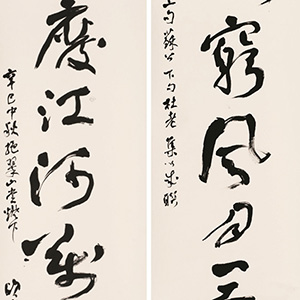 窮風月
上句蘇公下句杜老集以成聯
廢江河萬
辛巳中秋挹翠山堂燈下